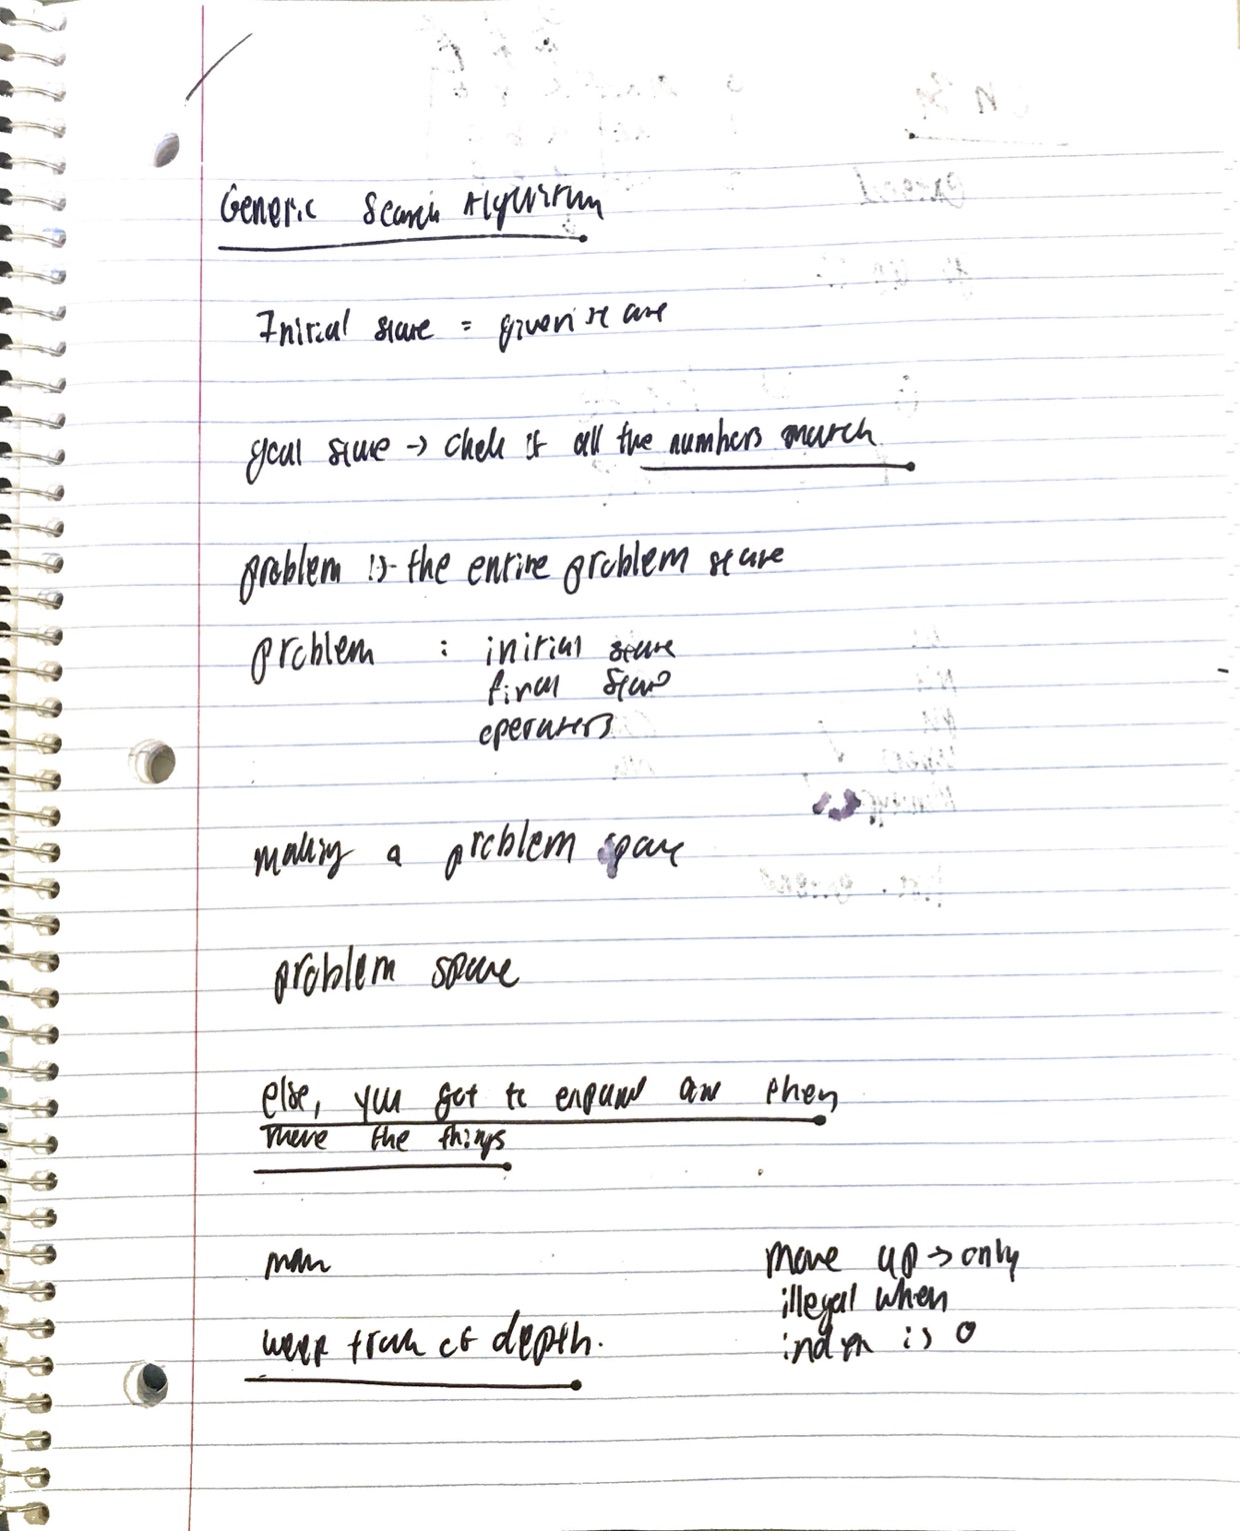 Generic Search Algorithm
Initial state = given state
goal state → check if all the numbers match
problem is the entire problem state
problem : initial state
final state
operators
making a problem space
problem space
else, you got to expand and then
move the things
keep track of depth.
move up → only
illegal when
index is 0